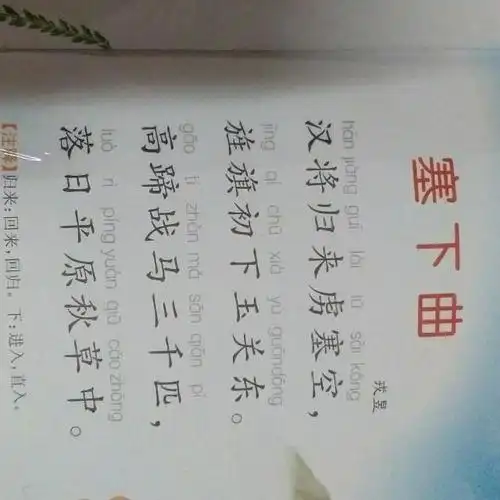 塞下曲
戎昱
hàn jiàng guī lái lǔ sài kōng
汉将归来虏塞空，
jīng qí chū xià yù guāndōng
旌旗初下玉关东。
gāo tí zhàn mǎ sān qiān pǐ
高蹄战马三千匹，
luò rì píng yuán qiū cǎo zhōng
落日平原秋草中。
【注释】归来：回来，回归。下：进入，直入。